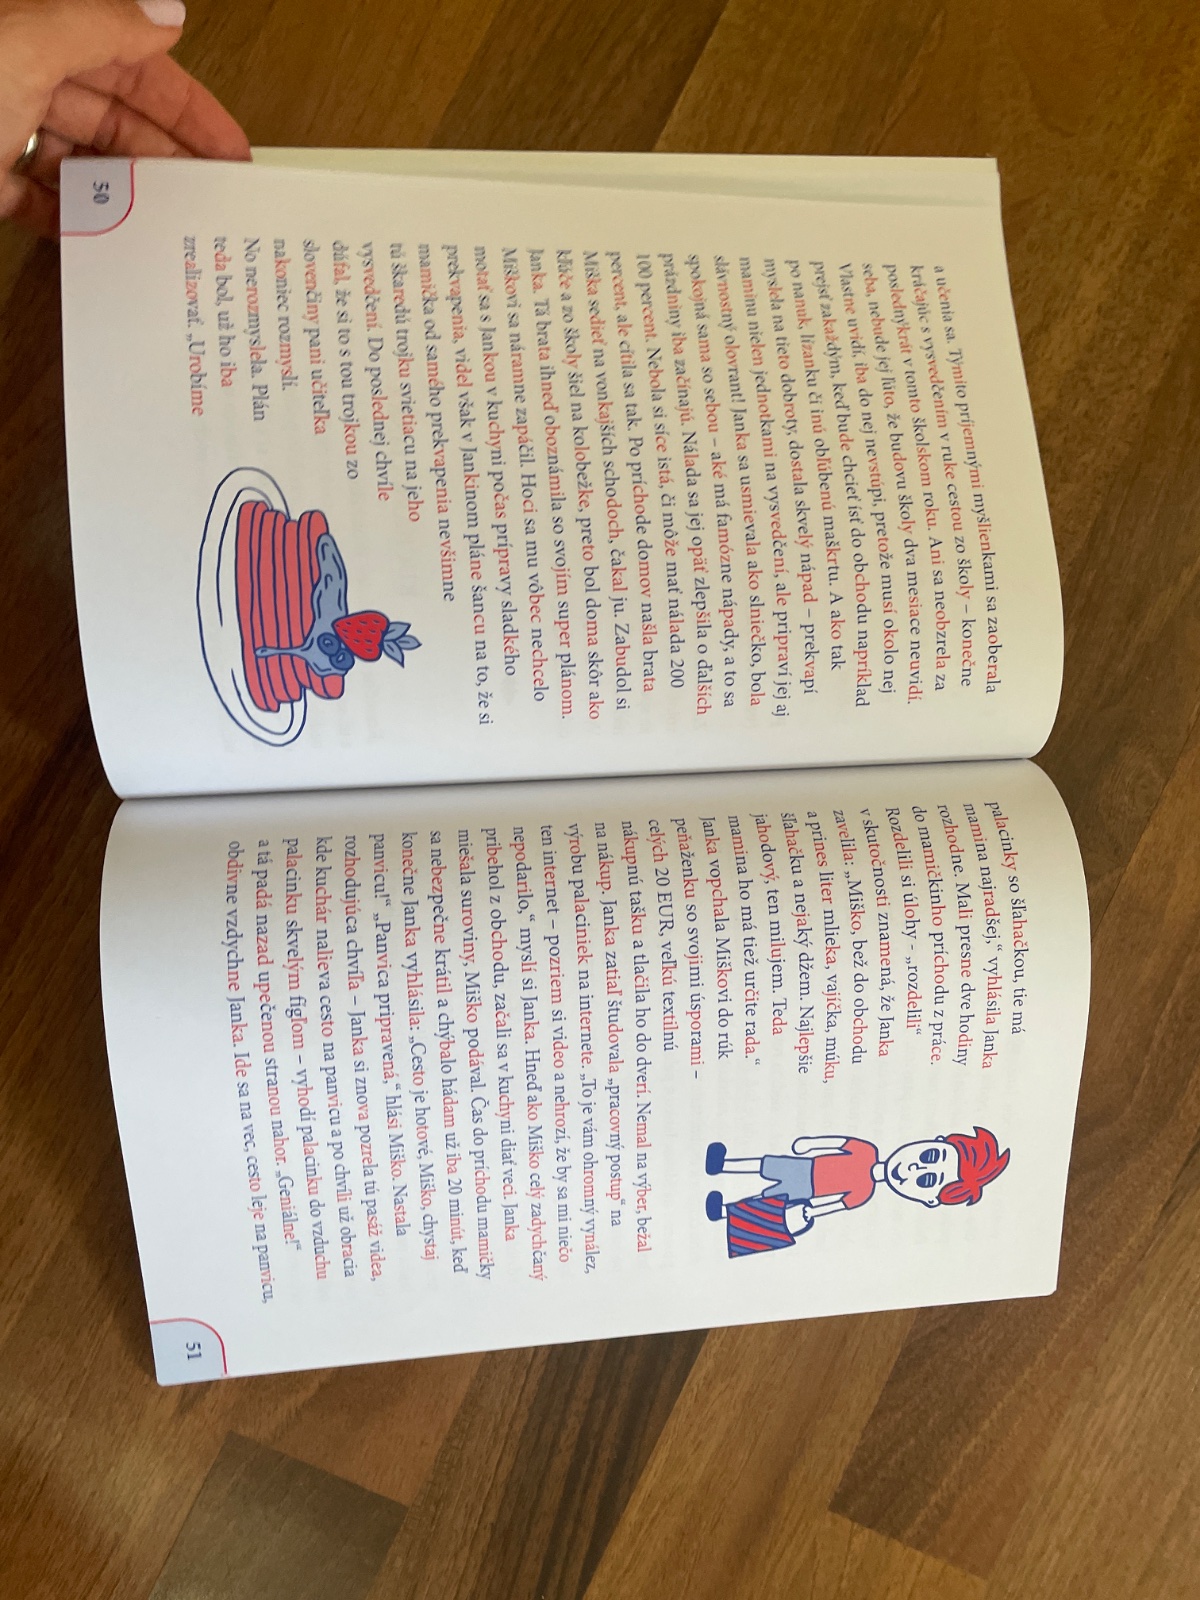 a učenia sa. Týmito príjemnými myšlienkami sa zaoberala
kráčajúc s vysvedčením v ruke cestou zo školy – konečne
poslednýkrát v tomto školskom roku. Ani sa neobzrela za
seba, nebude jej ľúto, že budovu školy dva mesiace neuvidí.
Vlastne uvidí, iba do nej nevstúpi, pretože musí okolo nej
prejsť zakaždým, keď bude chcieť ísť do obchodu napríklad
po nanuk, lízanku či inú obľúbenú maškrtu. A ako tak
myslela na tieto dobroty, dostala skvelý nápad – prekvapí
maminu nielen jednotkami na vysvedčení, ale pripraví jej aj
slávnostný olovrant! Janka sa usmievala ako slniečko, bola
spokojná sama so sebou – aké má famózne nápady, a to sa
prázdniny iba začínajú. Nálada sa jej opäť zlepšila o ďalších
100 percent. Nebola si síce istá, či môže mať nálada 200
percent, ale cítila sa tak. Po príchode domov našla brata
Miška sedieť na vonkajších schodoch, čakal ju. Zabudol si
kľúče a zo školy šiel na kolobežke, preto bol doma skôr ako
Janka. Tá brata ihneď oboznámila so svojím super plánom.
Miškovi sa náramne zapáčil. Hoci sa mu vôbec nechcelo
motať sa s Jankou v kuchyni počas prípravy sladkého
prekvapenia, videl však v Jankinom pláne šancu na to, že si
mamička od samého prekvapenia nevšimne
tú škaredú trojku svietiacu na jeho
vysvedčení. Do poslednej chvíle
dúfal, že si to s tou trojkou zo
slovenčiny pani učiteľka
nakoniec rozmyslí.
No nerozmyslela. Plán
teda bol, už ho iba
zrealizovať. „Urobíme
50
palacinky so šľahačkou, tie má
mamina najradšej,“ vyhlásila Janka
rozhodne. Mali presne dve hodiny
do mamičkinho príchodu z práce.
Rozdelili si úlohy - „rozdelili“
v skutočnosti znamená, že Janka
zavelila: „Miško, bež do obchodu
a prines liter mlieka, vajíčka, múku,
šľahačku a nejaký džem. Najlepšie
jahodový, ten milujem. Teda
mamina ho má tiež určite rada.“
Janka vopchala Miškovi do rúk
peňaženku so svojimi úsporami –
celých 20 EUR, veľkú textilnú
nákupnú tašku a tlačila ho do dverí. Nemal na výber, bežal
na nákup. Janka zatiaľ študovala „pracovný postup“ na
výrobu palaciniek na internete. „To je vám ohromný vynález,
ten internet – pozriem si video a nehrozí, že by sa mi niečo
nepodarilo,“ myslí si Janka. Hneď ako Miško celý zadychčaný
pribehol z obchodu, začali sa v kuchyni diať veci. Janka
miešala suroviny, Miško podával. Čas do príchodu mamičky
sa nebezpečne krátil a chýbalo hádam už iba 20 minút, keď
konečne Janka vyhlásila: „Cesto je hotové, Miško, chystaj
panvicu!“ „Panvica pripravená,“ hlási Miško. Nastala
rozhodujúca chvíľa – Janka si znova pozrela tú pasáž videa,
kde kuchár nalieva cesto na panvicu a po chvíli už obracia
palacinku skvelým fígľom – vyhodí palacinku do vzduchu
a tá padá nazad upečenou stranou nahor. „Geniálne!“
obdivne vzdychne Janka. Ide sa na vec, cesto leje na panvicu,
51